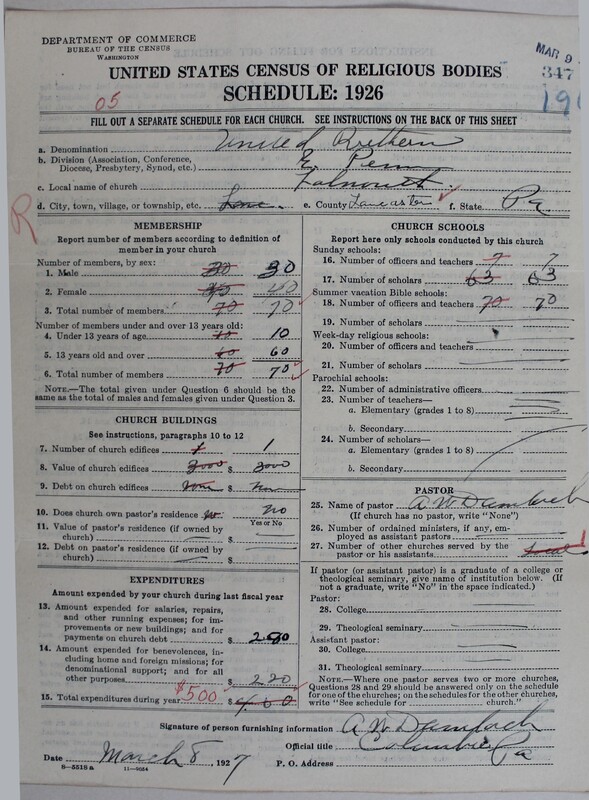 DEPARTMENT OF COMMERCE
BUREAU OF THE CENSUS
WASHINGTON
MAR 9
347
UNITED STATES CENSUS OF RELIGIOUS BODIES
SCHEDULE: 1926
05
FILL OUT A SEPARATE SCHEDULE FOR EACH CHURCH. SEE INSTRUCTIONS ON THE BACK OF THIS SHEET
a. Denomination United Brethern
b. Division (Association, Conference,
Diocese, Presbytery, Synod, etc.) E Penn
c. Local name of church Falmouth
d. City, town, village, or township, etc. Lanc. e. County Lancaster f. State Pa
R
MEMBERSHIP
Report number of members according to definition of
member in your church
Number of members, by sex:
1. Male 30 30
2. Female 40
3. Total number of members 70 70
Number of members under and over 13 years old:
4. Under 13 years of age 10 10
5. 13 years old and over 60 60
6. Total number of members 70 70
NOTE.—The total given under Question 6 should be
same as the total of males and females given under Question 3.
CHURCH BUILDINGS
See instructions, paragraphs 10 to 12
7. Number of church edifices 1 1
8. Value of church edifices 3000 $ 3000
9. Debt on church edifices $
10. Does church own pastor's residence No
Yes or No
11. Value of pastor's residence (if owned by
church) $
12. Debt on pastor's residence (if owned by
church) $
EXPENDITURES
Amount expended by your church during last fiscal year
13. Amount expended for salaries, repairs,
and other running expenses; for im-
provements or new buildings; and for
payments on church debt $ 280
14. Amount expended for benevolences, in-
cluding home and foreign missions; for
denominational support; and for all
other purposes $ 220
15. Total expenditures during year $500 $
CHURCH SCHOOLS
Report here only schools conducted by this church
Sunday schools:
16. Number of officers and teachers 7 7
17. Number of scholars 63 63
Summer vacation Bible schools:
18. Number of officers and teachers 70 70
19. Number of scholars
Week-day religious schools:
20. Number of officers and teachers
21. Number of scholars
Parochial schools:
22. Number of administrative officers
23. Number of teachers—
a. Elementary (grades 1 to 8)
b. Secondary
24. Number of scholars—
a. Elementary (grades 1 to 8)
b. Secondary
PASTOR
25. Name of pastor A W Dambach
(If church has no pastor, write "None")
26. Number of ordained ministers, if any, em-
ployed as assistant pastors
27. Number of other churches served by the
pastor or his assistants
If pastor (or assistant pastor) is a graduate of a college or
theological seminary, give name of institution below. (If
not a graduate, write "No" in the space indicated.)
Pastor:
28. College
29. Theological seminary
Assistant pastor:
30. College
31. Theological seminary
NOTE.—Where one pastor serves two or more churches,
Questions 28 and 29 should be answered only on the schedule
for one of the churches; on the schedules for the other churches,
write "See schedule for church."
Signature of person furnishing information A W Dambach
Official title Columbia Pa
Date March 8, 1927 P. O. Address
8—5518 a 11—9054